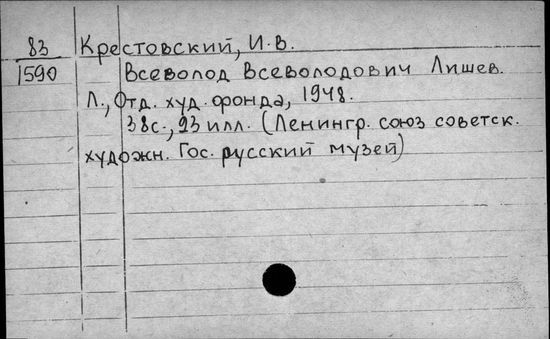 83 Крестовский, И.В.
1590 Всеволод Всеволодович Лишев.
Л., Отд. худ. фонда, 1948.
38с., 23 илл. (Ленингр. союз советск.
художн. Гос. русский музей)